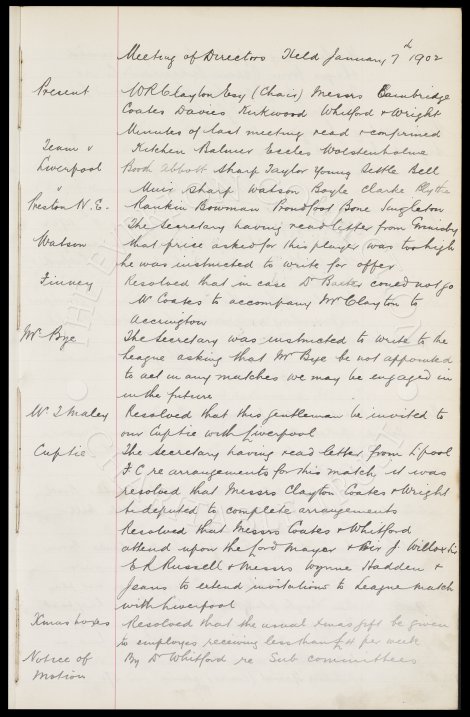 Meeting of Directors Held January 7th 1902
Present W R Clayton Esq (Chair) Messrs Bainbridge
Coates Davies Kirkwood Whitford & Wright
Minutes of last meeting read & confirmed
Team v Kitchen Balmer Eccles Wolstenholme
Liverpool Booth Abbott Sharp Taylor Young Settle Bell
" Muir Sharp Watson Boyle Clarke Blythe
Preston N. E. Rankin Bowman Proudfoot Bone Singleton
The Secretary having read letter from Grimsby
Watson that price asked for this player was too high
he was instructed to write for offer
Finney Resolved that in case Dr Baxter could not go
Mr Coates to accompany Mr Clayton to
Accrington
Mr Bye The Secretary was instructed to write to the
league asking that Mr Bye be not appointed
to act in any matches we may be engaged in
in the future
W. T Maley Resolved that this gentleman be invited to
our Cuptie with Liverpool
Cuptie The Secretary having read letter from L'pool
F C re arrangements for this match, it was
resolved that Messrs Clayton Coates & Wright
be deputed to complete arrangements
Resolved that Messrs Coates & Whitford
attend upon the Lord Mayor & Sir J Willox Sir
E R Russell & Messrs Wynne Hadden &
Jeans to extend invitations to League match
with Liverpool
Xmas boxes Resolved that the usual Xmas gift be given
to employes receiving less than £4 per week
Notice of By Dr Whitford re Sub committees
Motion